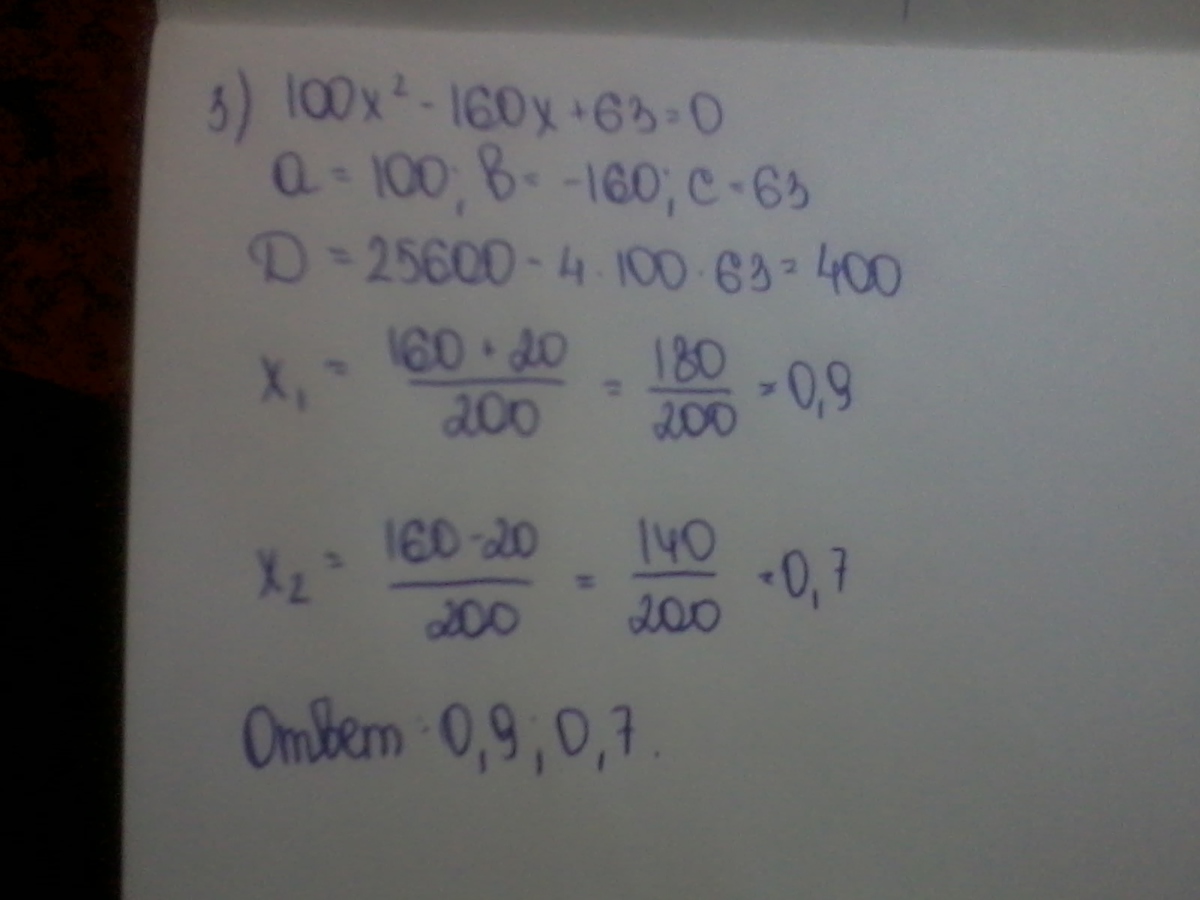 3) 100x² - 160x + 63 = 0
a = 100; b = -160; c = 63
D = 25600 - 4 · 100 · 63 = 400
x₁ = (160 + 20)/200 = 180/200 = 0,9
x₂ = (160 - 20)/200 = 140/200 = 0,7
Ответ: 0,9; 0,7.